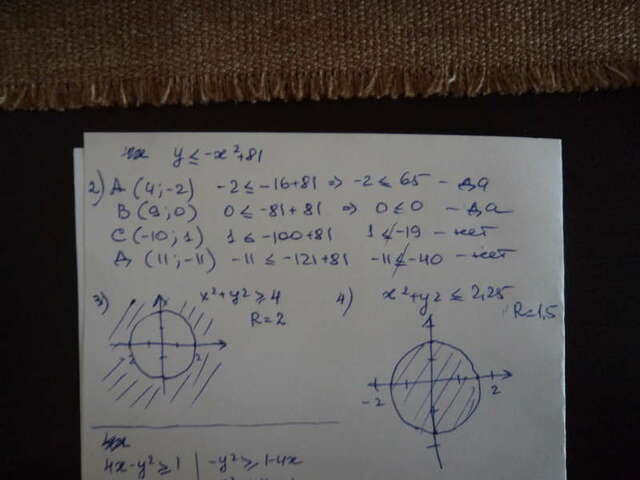 y ≤ -x²+81
2) A (4; -2) -2 ≤ -16+81 ⇒ -2 ≤ 65 - да
B (9; 0) 0 ≤ -81+81 ⇒ 0 ≤ 0 - да
C (-10; 1) 1 ≤ -100+81 1 ≰ -19 - нет
Д (11; -11) -11 ≤ -121+81 -11 ≰ -40 - нет
3) x²+y² ≥ 4
R=2
-2 2
4) x²+y² ≤ 2,25
R=1,5
-2 2
4x-y² ≥ 1 | -y² ≥ 1-4x